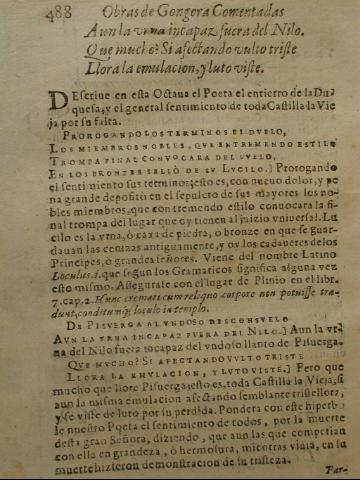 488 Obras de Gongora Comentadas
Aun la vrna incapaz fuera del Nilo.
Que mucho? Si afectando vulto triste
Llora la emulacion, y luto viste.
DEscriue en esta Octaua el Poeta el entierro de la Du
quesa, y el general sentimiento de toda Castilla la Vie
ja por su falta.
PROROGANDO LOS TERMINOS EL DVELO,
LOS MIEMBROS NOBLES, QVE EN TREMENDO ESTILO
TROMPA FINAL CONVOCARA DEL SVELO,
EN LOS BRONZES SELLÒ DE SV LVCILO.] Prorogando
el sentimiento sus terminos, esto es, con nueuo dolor, y pe
na grande depositò en el sepulcro de sus mayores los no-
bles miembros, que con tremendo estilo conuocara la fi-
nal trompa del lugar que oy tienen al juizio vniuersal. Lu
cilo es la vrna, ò caxa de piedra, ò bronze en que se guar-
dauan las cenizas antiguamente, y oy los cadaueres de los
Principes, ò grandes señores. Viene del nombre Latino
Loculus.i. que segun los Gramaticos significa alguna vez
esto mismo. Assegurase con el lugar de Plinio en el libr.
7. cap. 2. Hunc cremati cum reliquo corpore non potuisse tra-
dunt, conditumq; loculo in templo.
DE PISVERGA AL VNDOSO DESCONSVELO
AVN LA VRNA INCAPAZ FVERA DEL NILO.] Aun la vr-
na del Nilo fuera incapaz del vndoso llanto de Pisuerga.
QVE MVCHO? SI AFECTANDO VVLTO TRISTE
LLORA LA EMVLACION, Y LVTO VISTE.] Pero que
mucho que llore Pisuerga, esto es, toda Castilla la Vieja, si
aun la misma emulacion afectando semblante triste llora,
y se viste de luto por su perdida. Pondera con este hiperbo
le nuestro Poeta el sentimiento de todos, por la muerte
desta gran Señora, diziendo, que aun las que competian
con ella en grandeza, ò hermosura, mientras viuia, en su
muerte hizieron demonstracion de su tristeza.
Par-